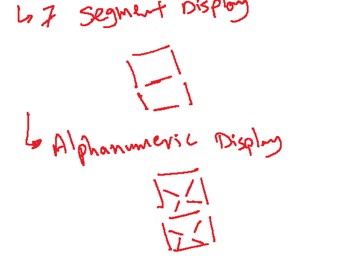 ↳ 7 Segment Display
↳ Alphanumeric Display